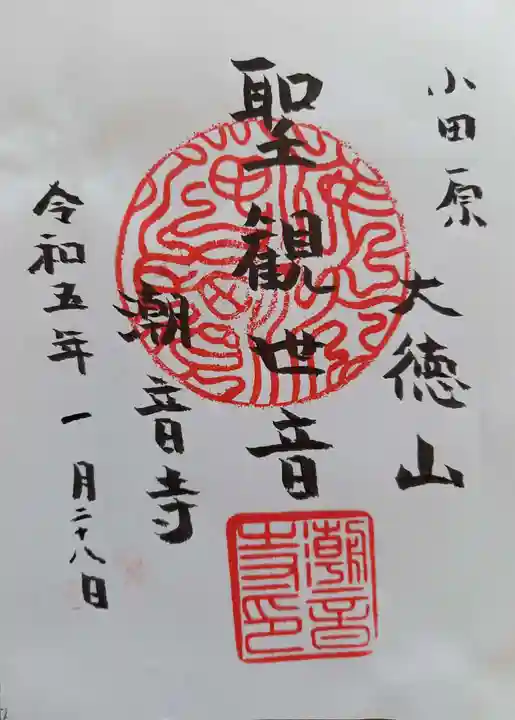 小田原
大徳山
聖観世音
潮音寺
令和五年一月二十八日
潮音
寺印